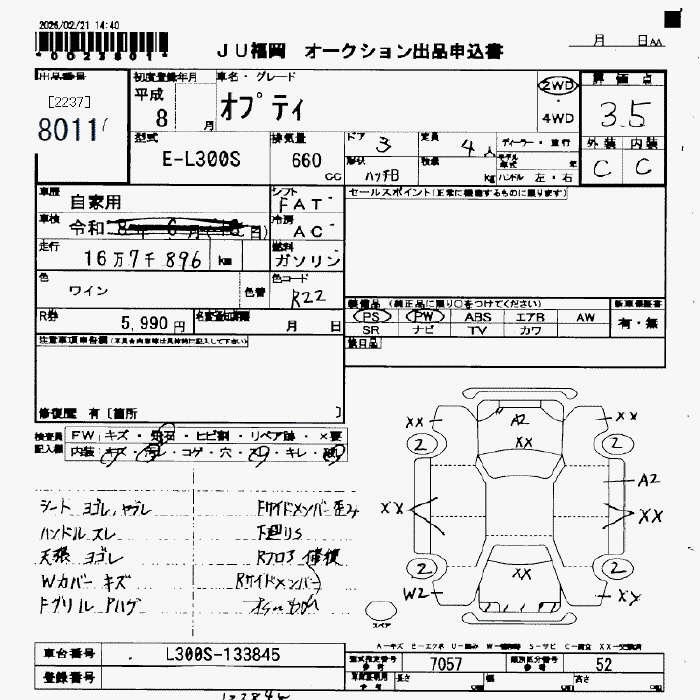 2026/02/21 14:40
*0023801*
JU福岡 オークション出品申込書
月 日 AA
出品番号 初度登録年月 車名・グレード 2WD 評価点
[2237] 平成 オプティ 4WD 3.5
8011 8 月
型式 排気量 ドア 3 定員 4人 ディーラー・並行 外装 内装
E-L300S 660 CC 形状 ハッチB 積載 kg モデル年式 年 ハンドル 左・右 C C
車歴 自家用 シフト FAT セールスポイント(正常に機能するものに限ります)
車検 令和 冷房 AC
走行 16万7千896 km 燃料 ガソリン
色 ワイン 色替 色コード R22
装備品 (純正品に限り○をつけてください) 新車保証書
R券 5,990 円 名変通知期限 月 日 PS PW ABS エアB AW 有・無
SR ナビ TV カワ
注意事項申告欄 後日品
修復歴 有 [箇所 ]
検査員記入欄 FW キズ・飛石・ヒビ割・リペア跡・×要
内装 キズ・汚レ・コゲ・穴・スレ・キレ
A2
XX XX
XX
2 2
A2
XX XX
2 2
XX
W2 XX
スペア
シート ヨゴレ、ヤブレ Fサイドメンバー歪み
ハンドル スレ F廻りS
天張 ヨゴレ Rフロア 修復
Wカバー キズ Rサイドメンバー
Fグリル Pハゲ
A-キズ E-エクボ U-凹み W-補修跡 S-サビ C-腐食 XX-交換済
車台番号 L300S-133845 型式指定番号 7057 類別区分番号 52
登録番号 長さ cm 幅 cm 高さ cm